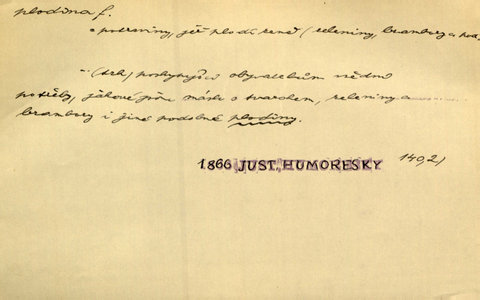 plodina f.
potraviny, jež plodí země (zeleniny, brambory a pod.
(trh) poskytující obyvatelům
potřeby, jakové jsou máslo s tvarohem, zeleniny a
brambory i jiné podobné plodiny.
1866 JUST, HUMORESKY 140,2)